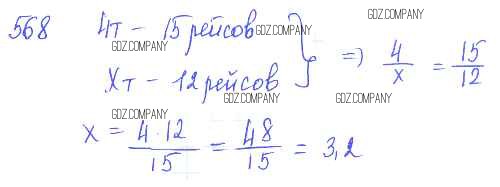 568 4т – 15 рейсов } => 4/x = 15/12
GDZ.COMPANY GDZ.COMPANY GDZ.COMPANY
xт – 12 рейсов
GDZ.COMPANY GDZ.COMPANY GDZ.COMPANY
x = 4·12/15 = 48/15 = 3,2